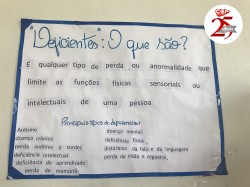 "Deficientes": O que são?
É qualquer tipo de perda ou anormalidade que
limite as funções físicas sensoriais ou
intelectuais de uma pessoa
Principais tipos de deficiências:
Autismo
doença crônica
perda auditiva e surdez
deficiência intelectual
deficiência de aprendizado
perda de memória
doença mental
deficiência física
distúrbios da fala e da linguagem
perda de visão e cegueira,
25